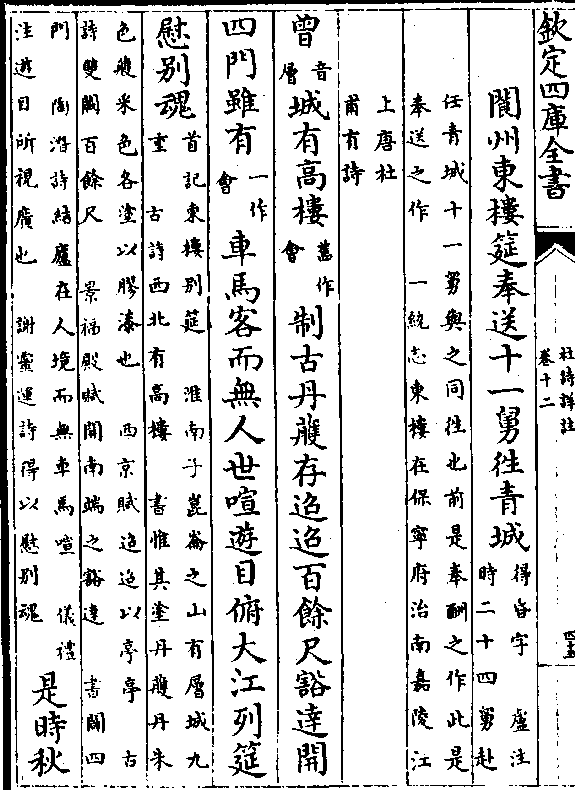 欽定四庫全書
杜詩詳註
卷十二
閬州東樓筵奉送十一舅往青城得昏字　盧注時二十四舅赴
任青城十一舅與之同往也前是奉酬之作此是
奉送之作　一統志東樓在保寧府治南嘉陵江
上唐杜
甫有詩
曾音層城有高樓舊作會制古丹雘存迢迢百餘尺豁達開
四門雖有一作會車馬客而無人世喧遊目俯大江列筵
慰別魂首記東樓別筵　淮南子崑崙之山有層城九
重　古詩西北有高樓　書惟其塗丹雘丹朱
色雘采色各塗以膠漆也　西京賦迢迢以亭亭　古
詩雙闕百餘尺　景福殿賦開南端之豁達　書闢四
門　陶潛詩結廬在人境而無車馬喧　儀禮
注遊目所視廣也　謝靈運詩得以慰別魂是時秋